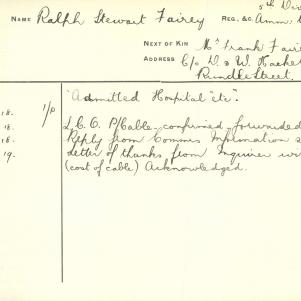 5th Div
NAME Ralph Stewart Fairey REG. &C. Amm.
NEXT OF KIN Mr Frank Fair
ADDRESS C/o D. & W.
Rundle Street.
"Admitted Hospital etc".
18. 1/P L.C.O. P/Cable confirmed forwarded
18. Reply from Commrs Information
19. Letter of thanks from Inquirer
(cost of cable) Acknowledged.